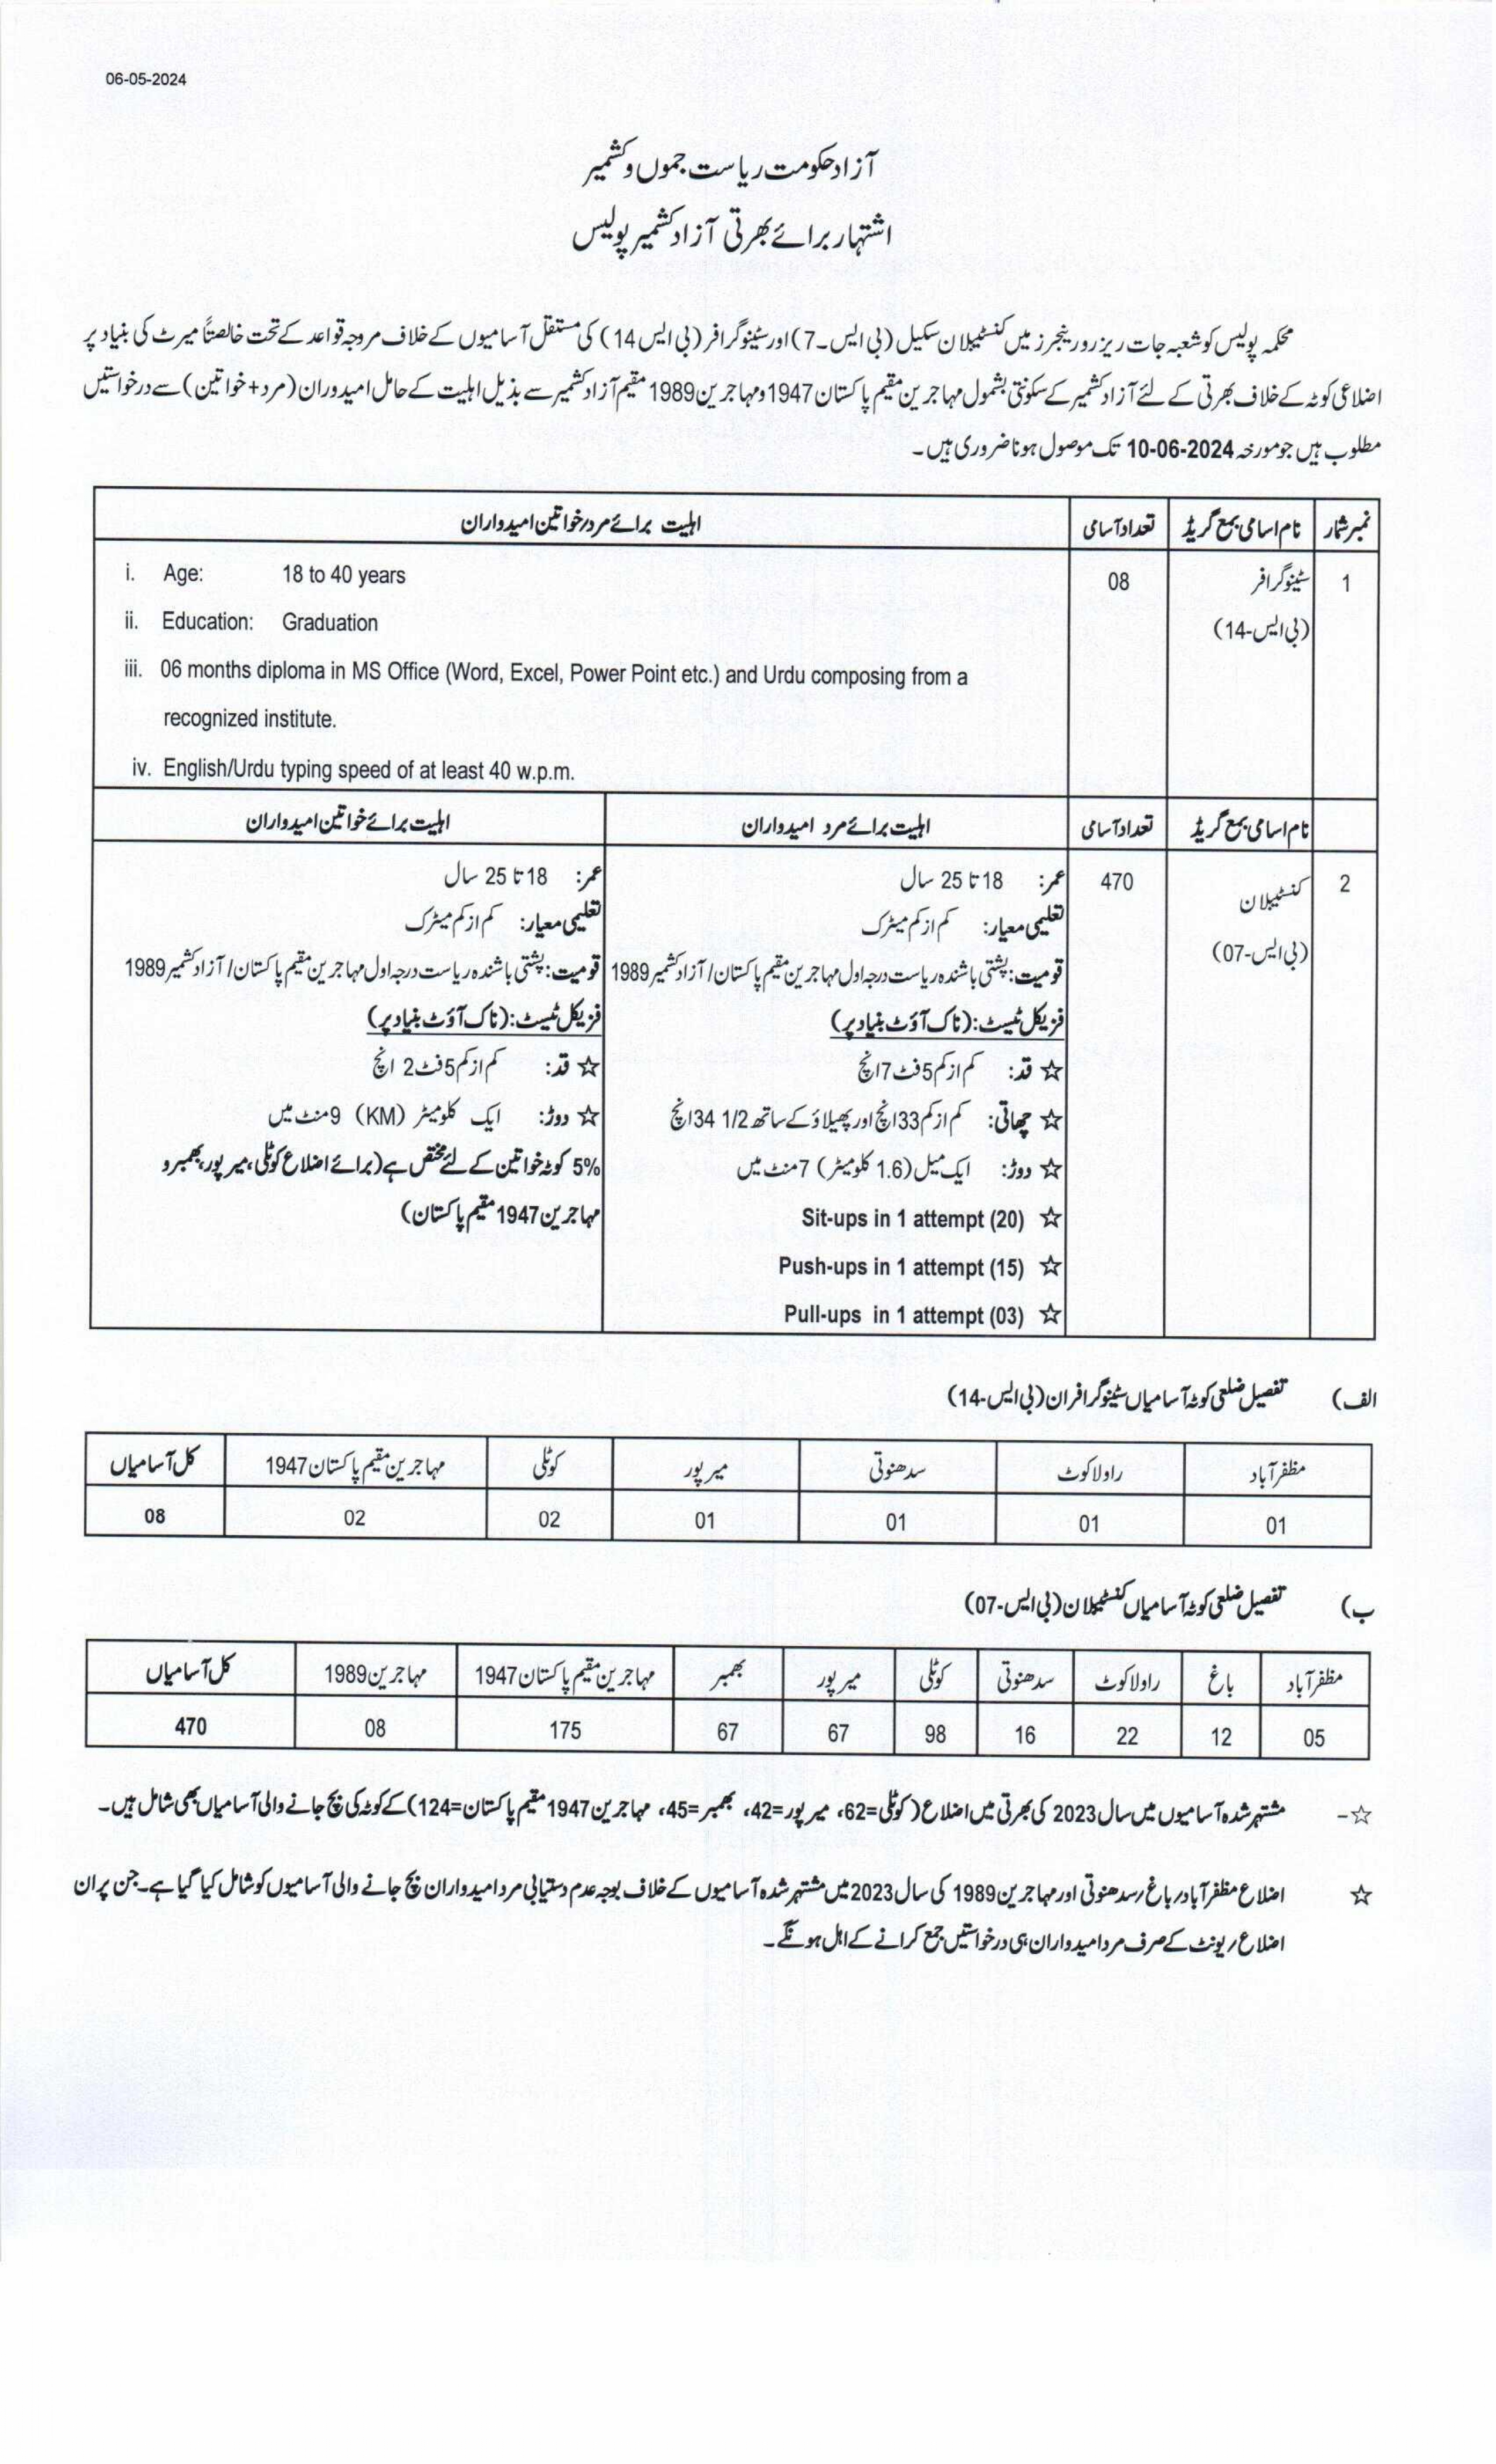 06-05-2024
آزاد حکومت ریاست جموں و کشمیر
اشتہار برائے بھرتی آزاد کشمیر پولیس
محکمہ پولیس کو شعبہ جات ریزرو رینجرز میں کنسٹیبلان سکیل (بی ایس۔7) اور سٹینوگرافر (بی ایس 14) کی مستقل آسامیوں کے خلاف مروجہ قواعد کے تحت خالصتاً میرٹ کی بنیاد پر
اضلاعی کوٹہ کے خلاف بھرتی کے لئے آزاد کشمیر کے سکونتی بشمول مہاجرین مقیم پاکستان 1947 و مہاجرین 1989 مقیم آزاد کشمیر سے بذیل اہلیت کے حامل امیدوران (مرد+خواتین) سے درخواستیں
مطلوب ہیں جو مورخہ 10-06-2024 تک موصول ہونا ضروری ہیں۔
نمبر شمار نام اسامی بمع گریڈ تعداد آسامی اہلیت برائے مرد/خواتین امیدواران
1 سٹینوگرافر 08
(بی ایس-14)
i. Age: 18 to 40 years
ii. Education: Graduation
iii. 06 months diploma in MS Office (Word, Excel, Power Point etc.) and Urdu composing from a
recognized institute.
iv. English/Urdu typing speed of at least 40 w.p.m.
نام اسامی بمع گریڈ تعداد آسامی اہلیت برائے مرد امیدواران اہلیت برائے خواتین امیدواران
2 کنسٹیبلان 470
(بی ایس-07)
عمر: 18 تا 25 سال
تعلیمی معیار: کم از کم میٹرک
قومیت: پشتی باشندہ ریاست درجہ اول مہاجرین مقیم پاکستان/ آزاد کشمیر 1989
فزیکل ٹیسٹ: (ناک آؤٹ بنیاد پر)
☆ قد: کم از کم 5 فٹ 7 انچ
☆ چھاتی: کم از کم 33 انچ اور پھیلاؤ کے ساتھ 34 1/2 انچ
☆ دوڑ: ایک میل (1.6 کلومیٹر) 7 منٹ میں
☆ Sit-ups in 1 attempt (20)
☆ Push-ups in 1 attempt (15)
☆ Pull-ups in 1 attempt (03)
عمر: 18 تا 25 سال
تعلیمی معیار: کم از کم میٹرک
قومیت: پشتی باشندہ ریاست درجہ اول مہاجرین مقیم پاکستان/ آزاد کشمیر 1989
فزیکل ٹیسٹ: (ناک آؤٹ بنیاد پر)
☆ قد: کم از کم 5 فٹ 2 انچ
☆ دوڑ: ایک کلومیٹر (KM) 9 منٹ میں
5% کوٹہ خواتین کے لئے مختص ہے (برائے اضلاع کوٹلی، میرپور، بھمبر و
مہاجرین 1947 مقیم پاکستان)
الف) تفصیل ضلعی کوٹہ آسامیاں سٹینوگرافران (بی ایس-14)
مظفر آباد راولاکوٹ سدھنوتی میر پور کوٹلی مہاجرین مقیم پاکستان 1947 کل آسامیاں
01 01 01 01 02 02 08
ب) تفصیل ضلعی کوٹہ آسامیاں کنسٹیبلان (بی ایس-07)
مظفر آباد باغ راولاکوٹ سدھنوتی کوٹلی میر پور بھمبر مہاجرین مقیم پاکستان 1947 مہاجرین 1989 کل آسامیاں
05 12 22 16 98 67 67 175 08 470
☆- مشتہر شدہ آسامیوں میں سال 2023 کی بھرتی میں اضلاع (کوٹلی=62، میر پور=42، بھمبر=45، مہاجرین 1947 مقیم پاکستان=124) کے کوٹہ کی بچ جانے والی آسامیاں بھی شامل ہیں۔
☆ اضلاع مظفر آباد/ باغ/ سدھنوتی اور مہاجرین 1989 کی سال 2023 میں مشتہر شدہ آسامیوں کے خلاف بوجہ عدم دستیابی مرد امیدواران بچ جانے والی آسامیوں کو شامل کیا گیا ہے۔ جن پر ان
اضلاع/ یونٹ کے صرف مرد امیدواران ہی درخواستیں جمع کرانے کے اہل ہونگے۔